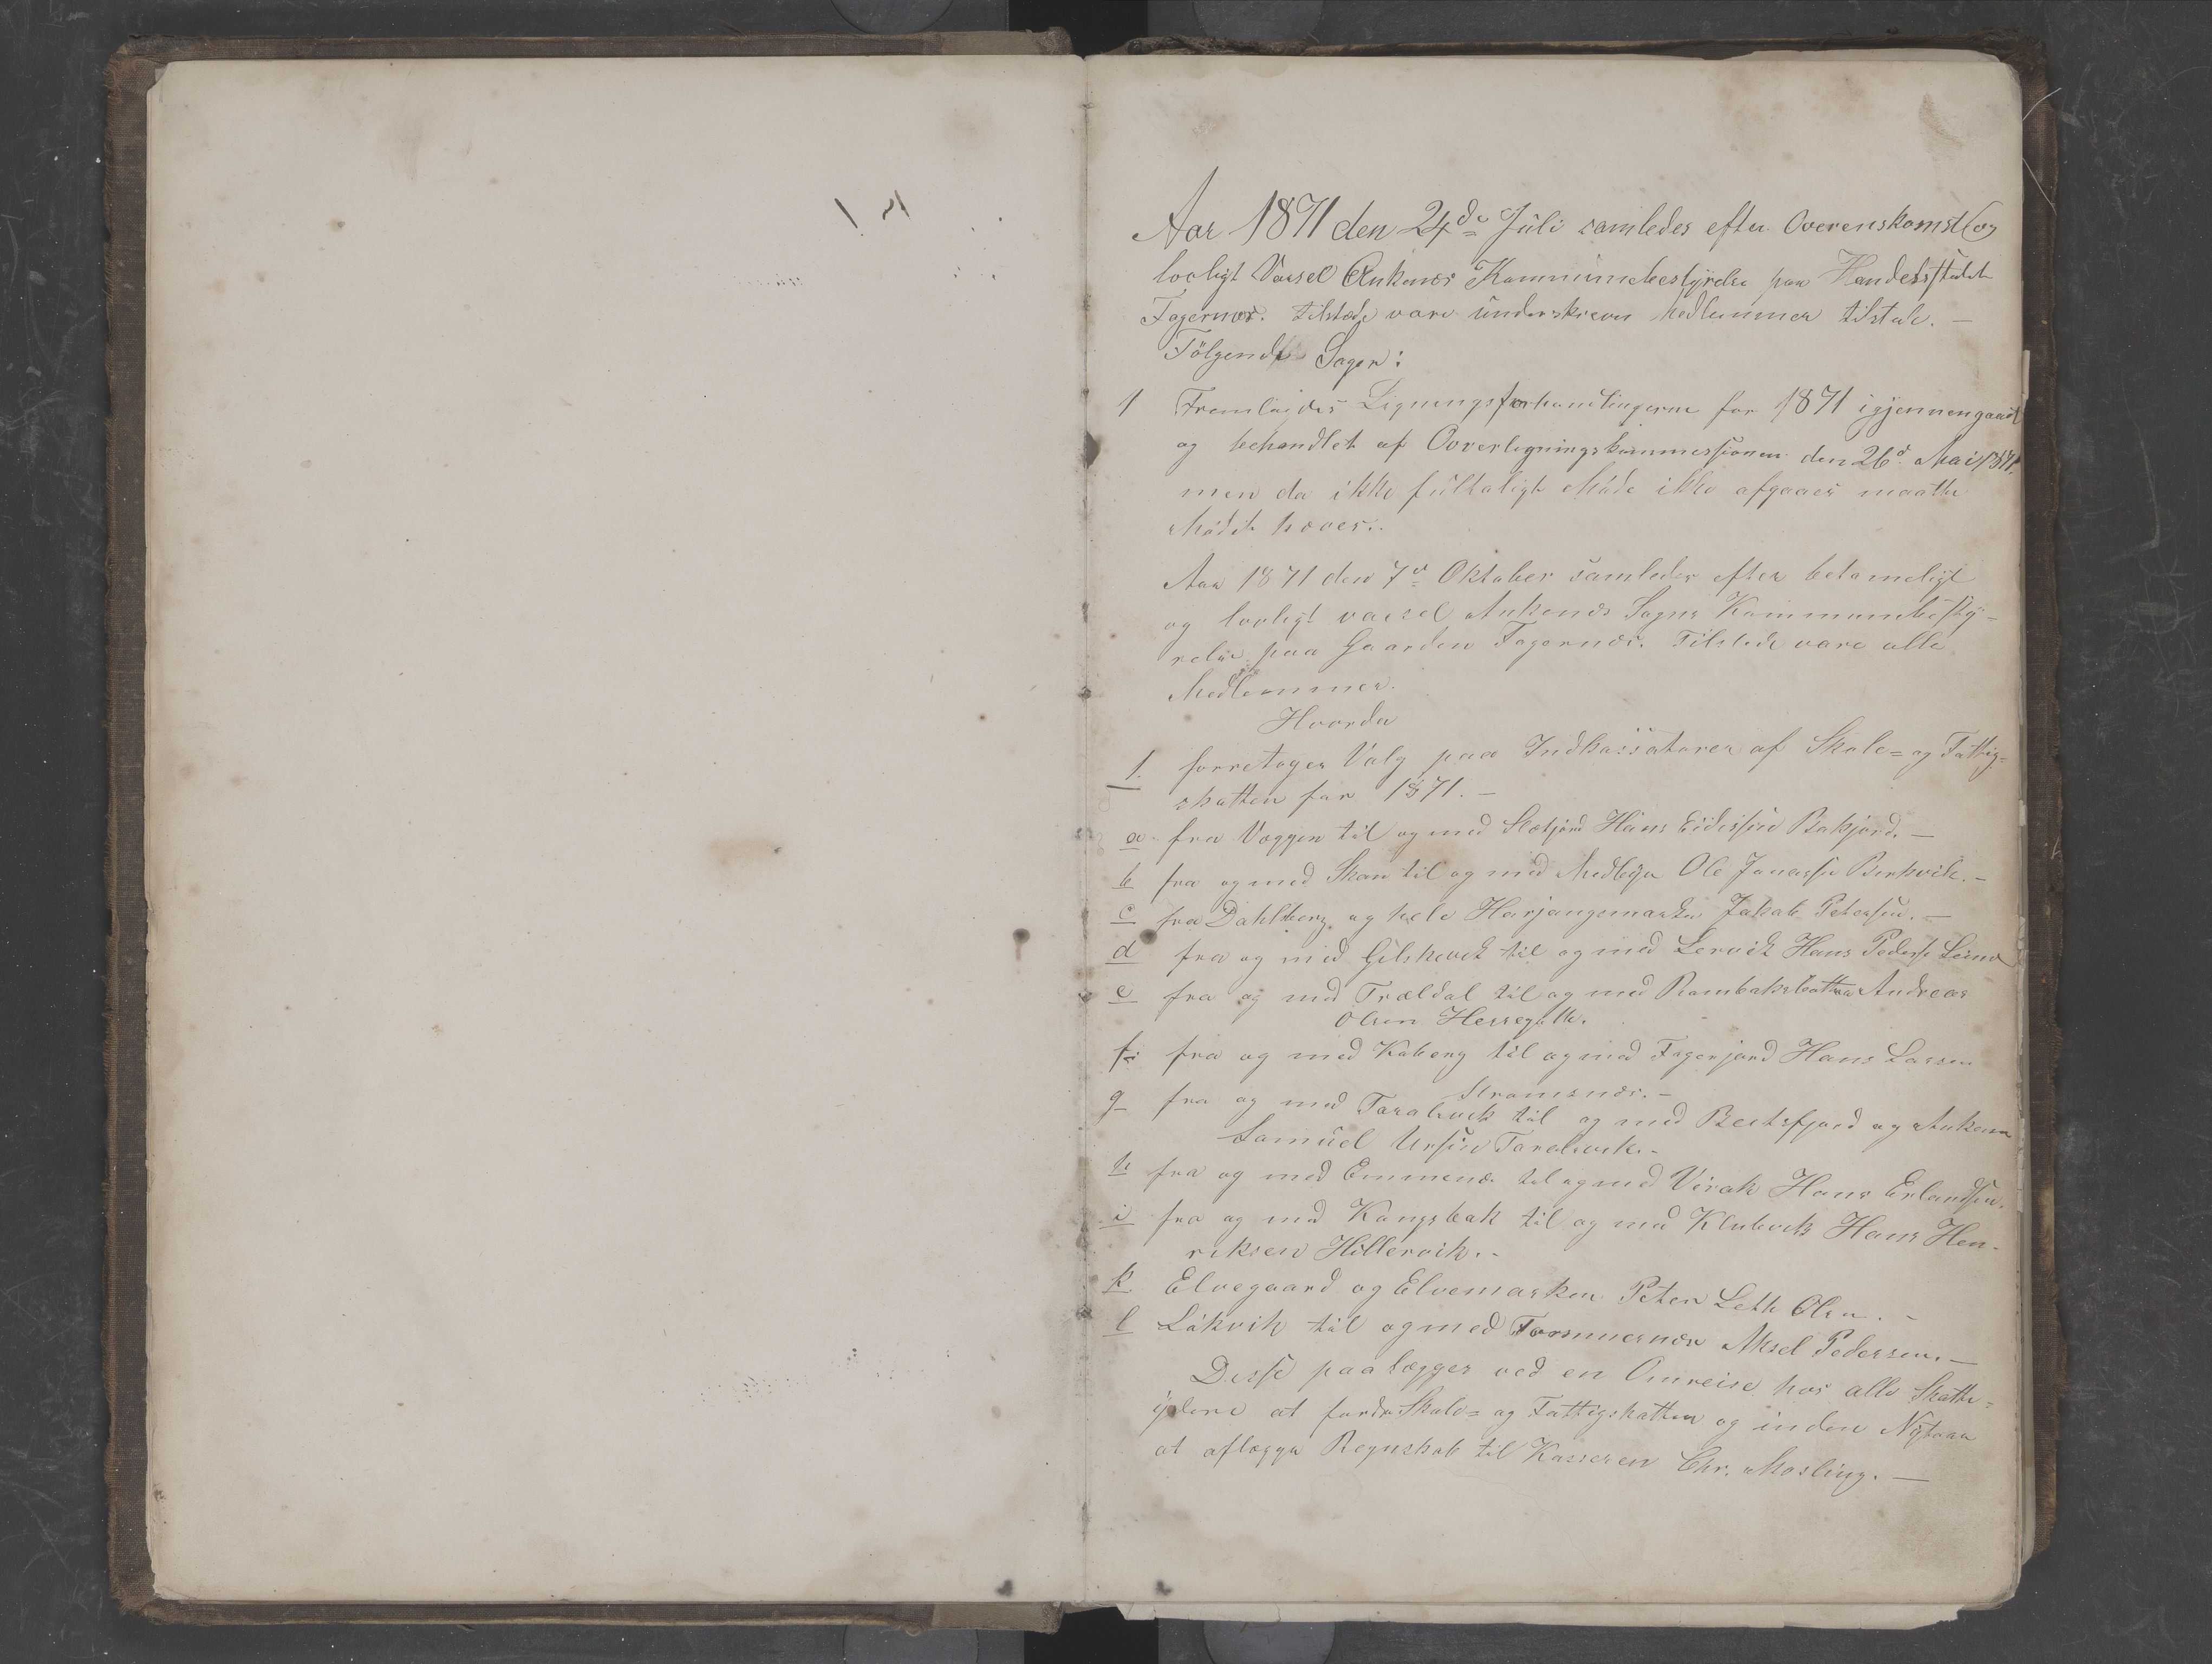 Aar 1871 den 24de Juli samledes efter Overenskomst og
lovligt Varsel Ankenes Kommunebestyrelse paa Handelsstedet
Fagernæs. tilstæde vare underskrevne Medlemmer tilstede. —
Følgende Sager:
1 Fremlagdes Ligningsforhandlingerne for 1871 igjennemgaaet
og behandlet af Overligningskommissionen den 26d Mai 1871.
men da ikke fultaligt Møde ikke afgaaes maatte
Mødet hæves.
Aar 1871 den 7d Oktober samledes efter betimeligt
og lovligt varsel Ankenes Sogns Kommunebesty-
relse paa Gaarden Fagernæs. Tilstede vare alle
Medlemmer.
Hvorda
1. forretoges Valg paa Indkassatorer af Skole= og Fattig=
skatten for 1871. —
a fra Væggen til og med Sletjord Hans Eidissen Bakjord. —
b fra og med Skam til og med Medbye Ole Jonassen Birkvik. —
c fra Dahlberg og hele Harjangsmarken Jakob Petersen. —
d fra og med Gilskevik til og med Lervik Hans Pederse Leines
e fra og med Trældal til og med Rombaksbotten Andreas
Olsen Hersegatte.
f. fra og med Kaberg til og med Fagerjord Hans Larsen
Strømsnæs. —
g fra og med Taralsvik til og med Beitsfjord og Ankenæs
Samuel Ursin Taralsvik. —
h fra og med Emmenæs til og med Virak Hans Erlandsen.
i fra og med Kongsbak til og med Klubvik Hans Hen-
riksen Hillervik. —
k Elvegaard og Elvemarken Peter Leth Olsen. —
l Lákvik til og med Tommernæs Aksel Pedersen. —
Disse paalægges ved en Omreise hos alle Skatte=
ydere at fordre Skole= og Fattigskatten og inden Nytaar
at aflægge Regnskab til Kasseren Chr. Mosling. —